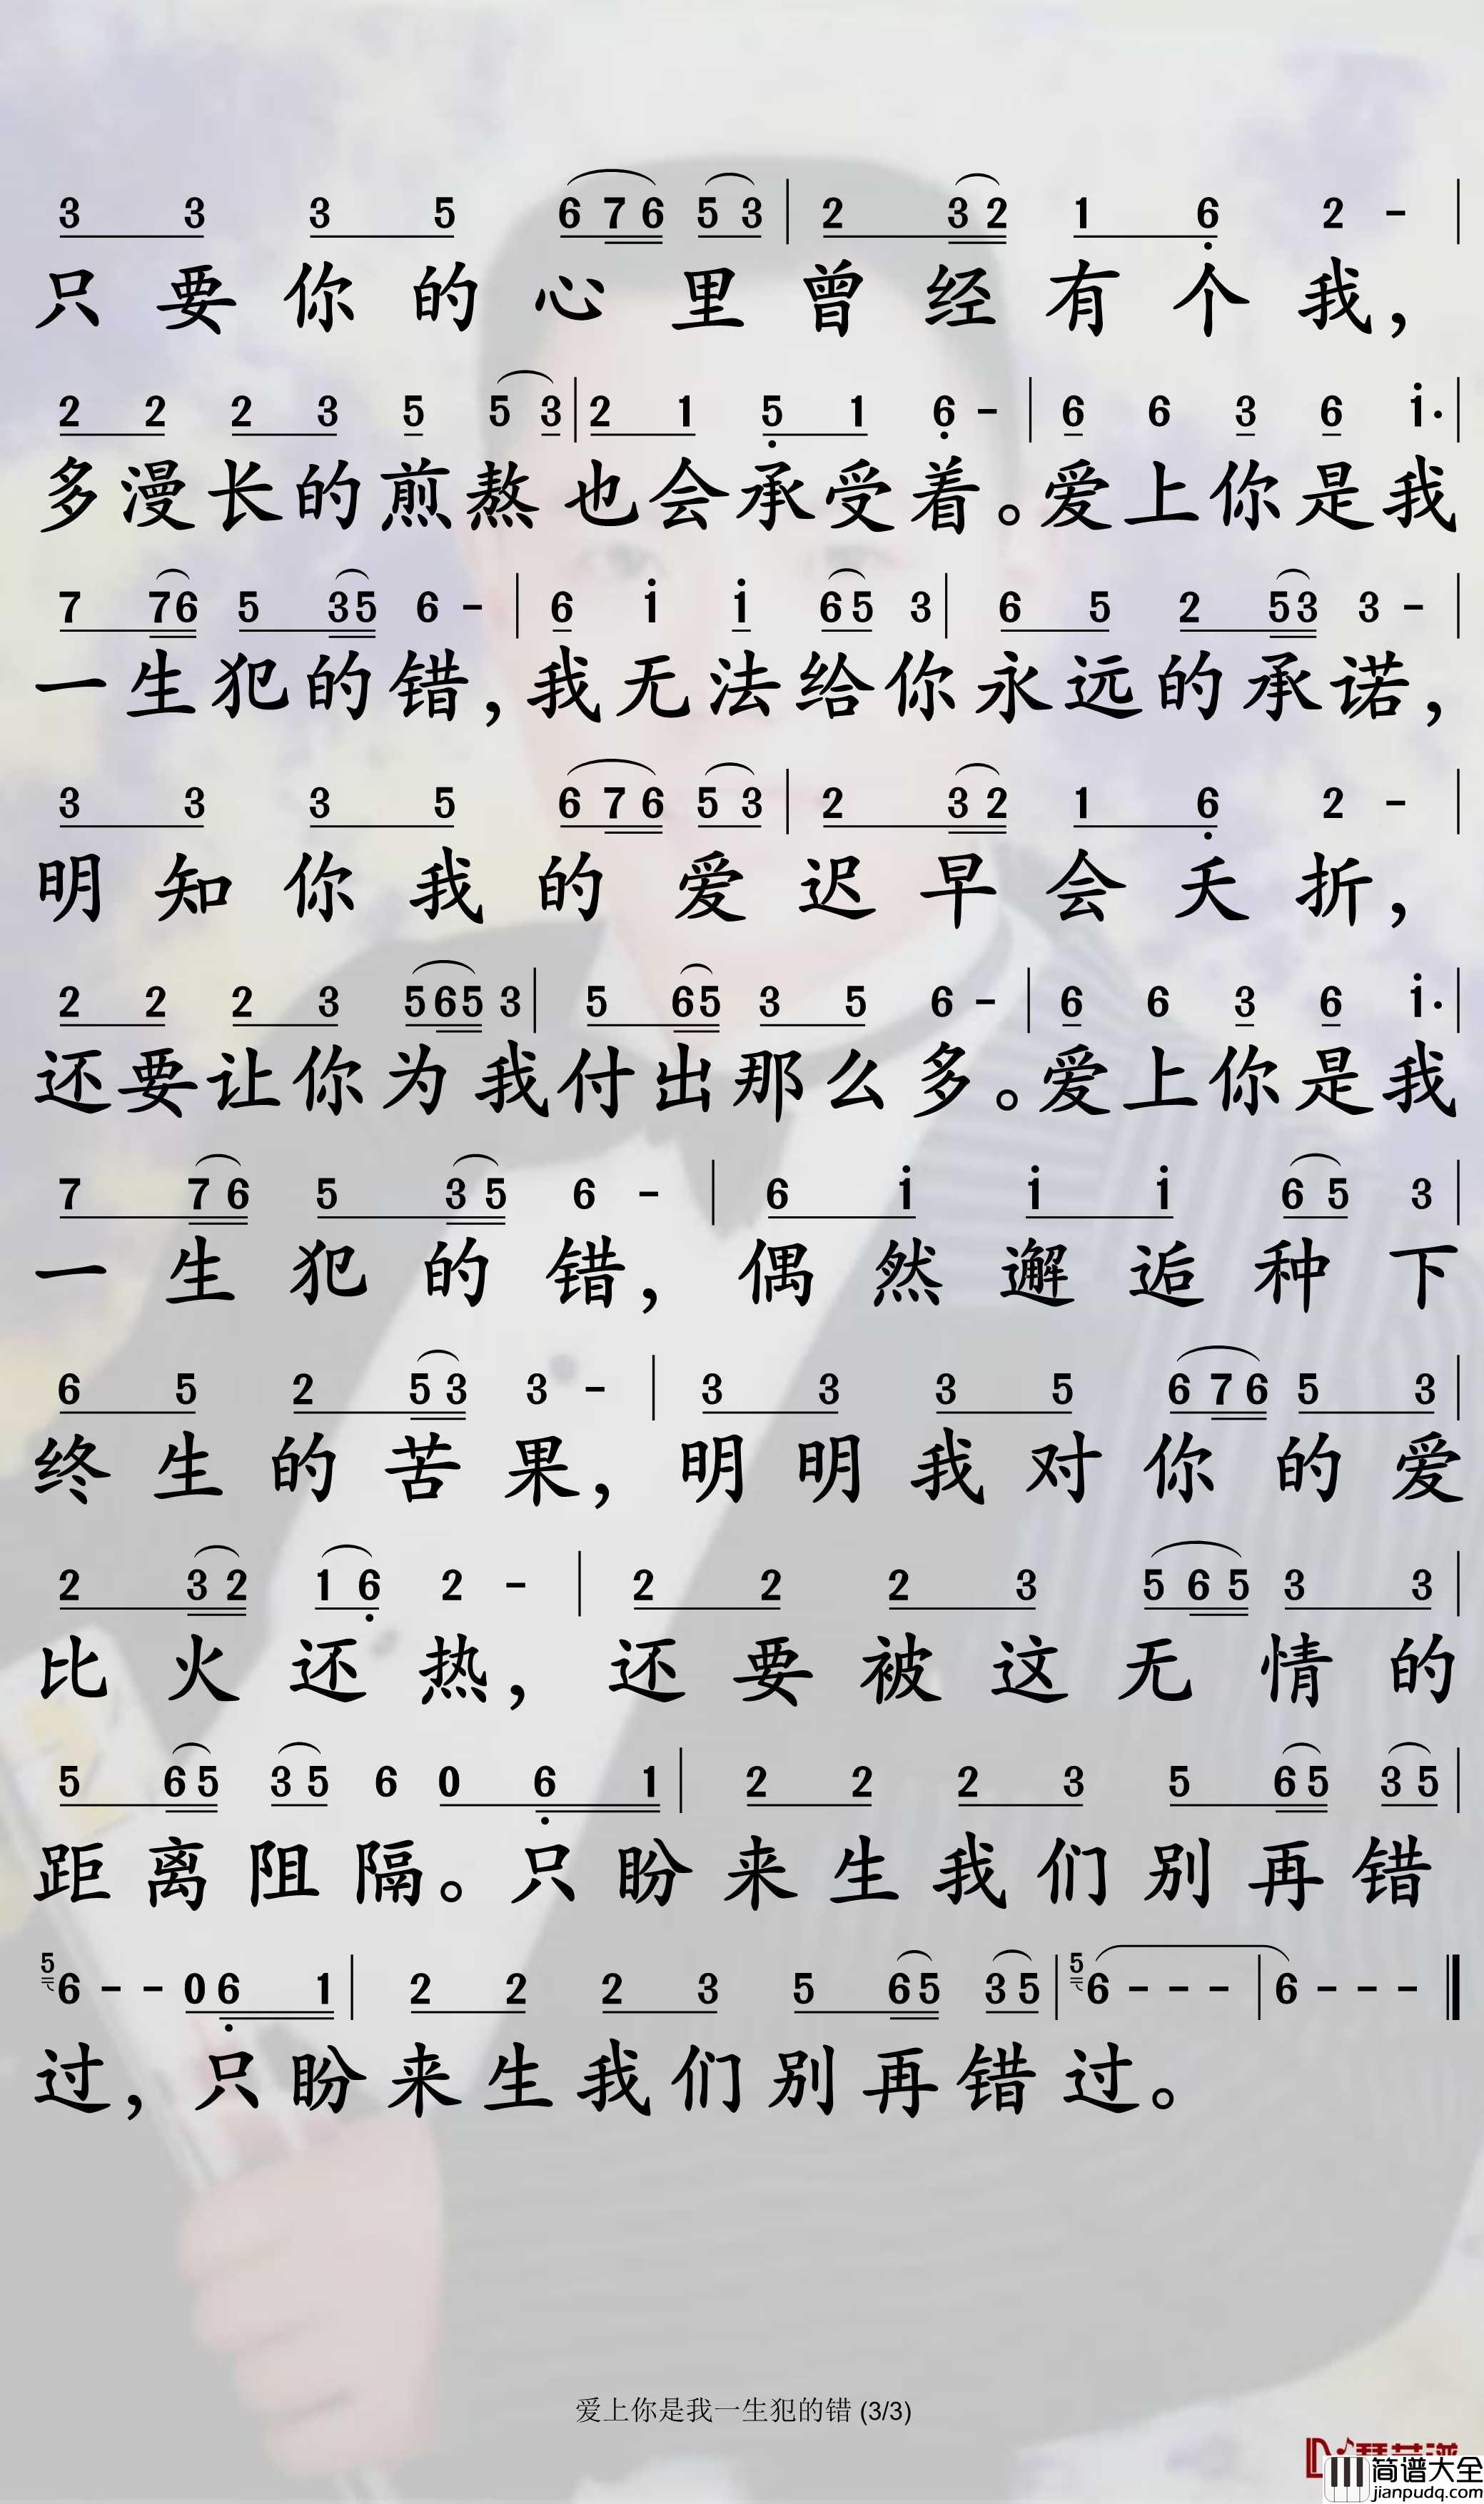 3 3 3 5 6 7 6 5 3 | 2 3 2 1 6 2 - |
只要你的心里曾经有个我，
2 2 2 3 5 5 3 | 2 1 5 1 6 - | 6 6 3 6 i· |
多漫长的煎熬也会承受着。爱上你是我
7 7 6 5 3 5 6 - | 6 i i 6 5 3 | 6 5 2 5 3 3 - |
一生犯的错，我无法给你永远的承诺，
3 3 3 5 6 7 6 5 3 | 2 3 2 1 6 2 - |
明知你我的爱迟早会夭折，
2 2 2 3 5 6 5 3 | 5 6 5 3 5 6 - | 6 6 3 6 i· |
还要让你为我付出那么多。爱上你是我
7 7 6 5 3 5 6 - | 6 i i i 6 5 3 |
一生犯的错，偶然邂逅种下
6 5 2 5 3 3 - | 3 3 3 5 6 7 6 5 3 |
终生的苦果，明明我对你的爱
2 3 2 1 6 2 - | 2 2 2 3 5 6 5 3 3 |
比火还热，还要被这无情的
5 6 5 3 5 6 0 6 1 | 2 2 2 3 5 6 5 3 5 |
距离阻隔。只盼来生我们别再错
5 6 - - 0 6 1 | 2 2 2 3 5 6 5 3 5 | 5 6 - - - | 6 - - - ‖
过，只盼来生我们别再错过。
爱上你是我一生犯的错 (3/3)
简谱大全
jianpudq.com